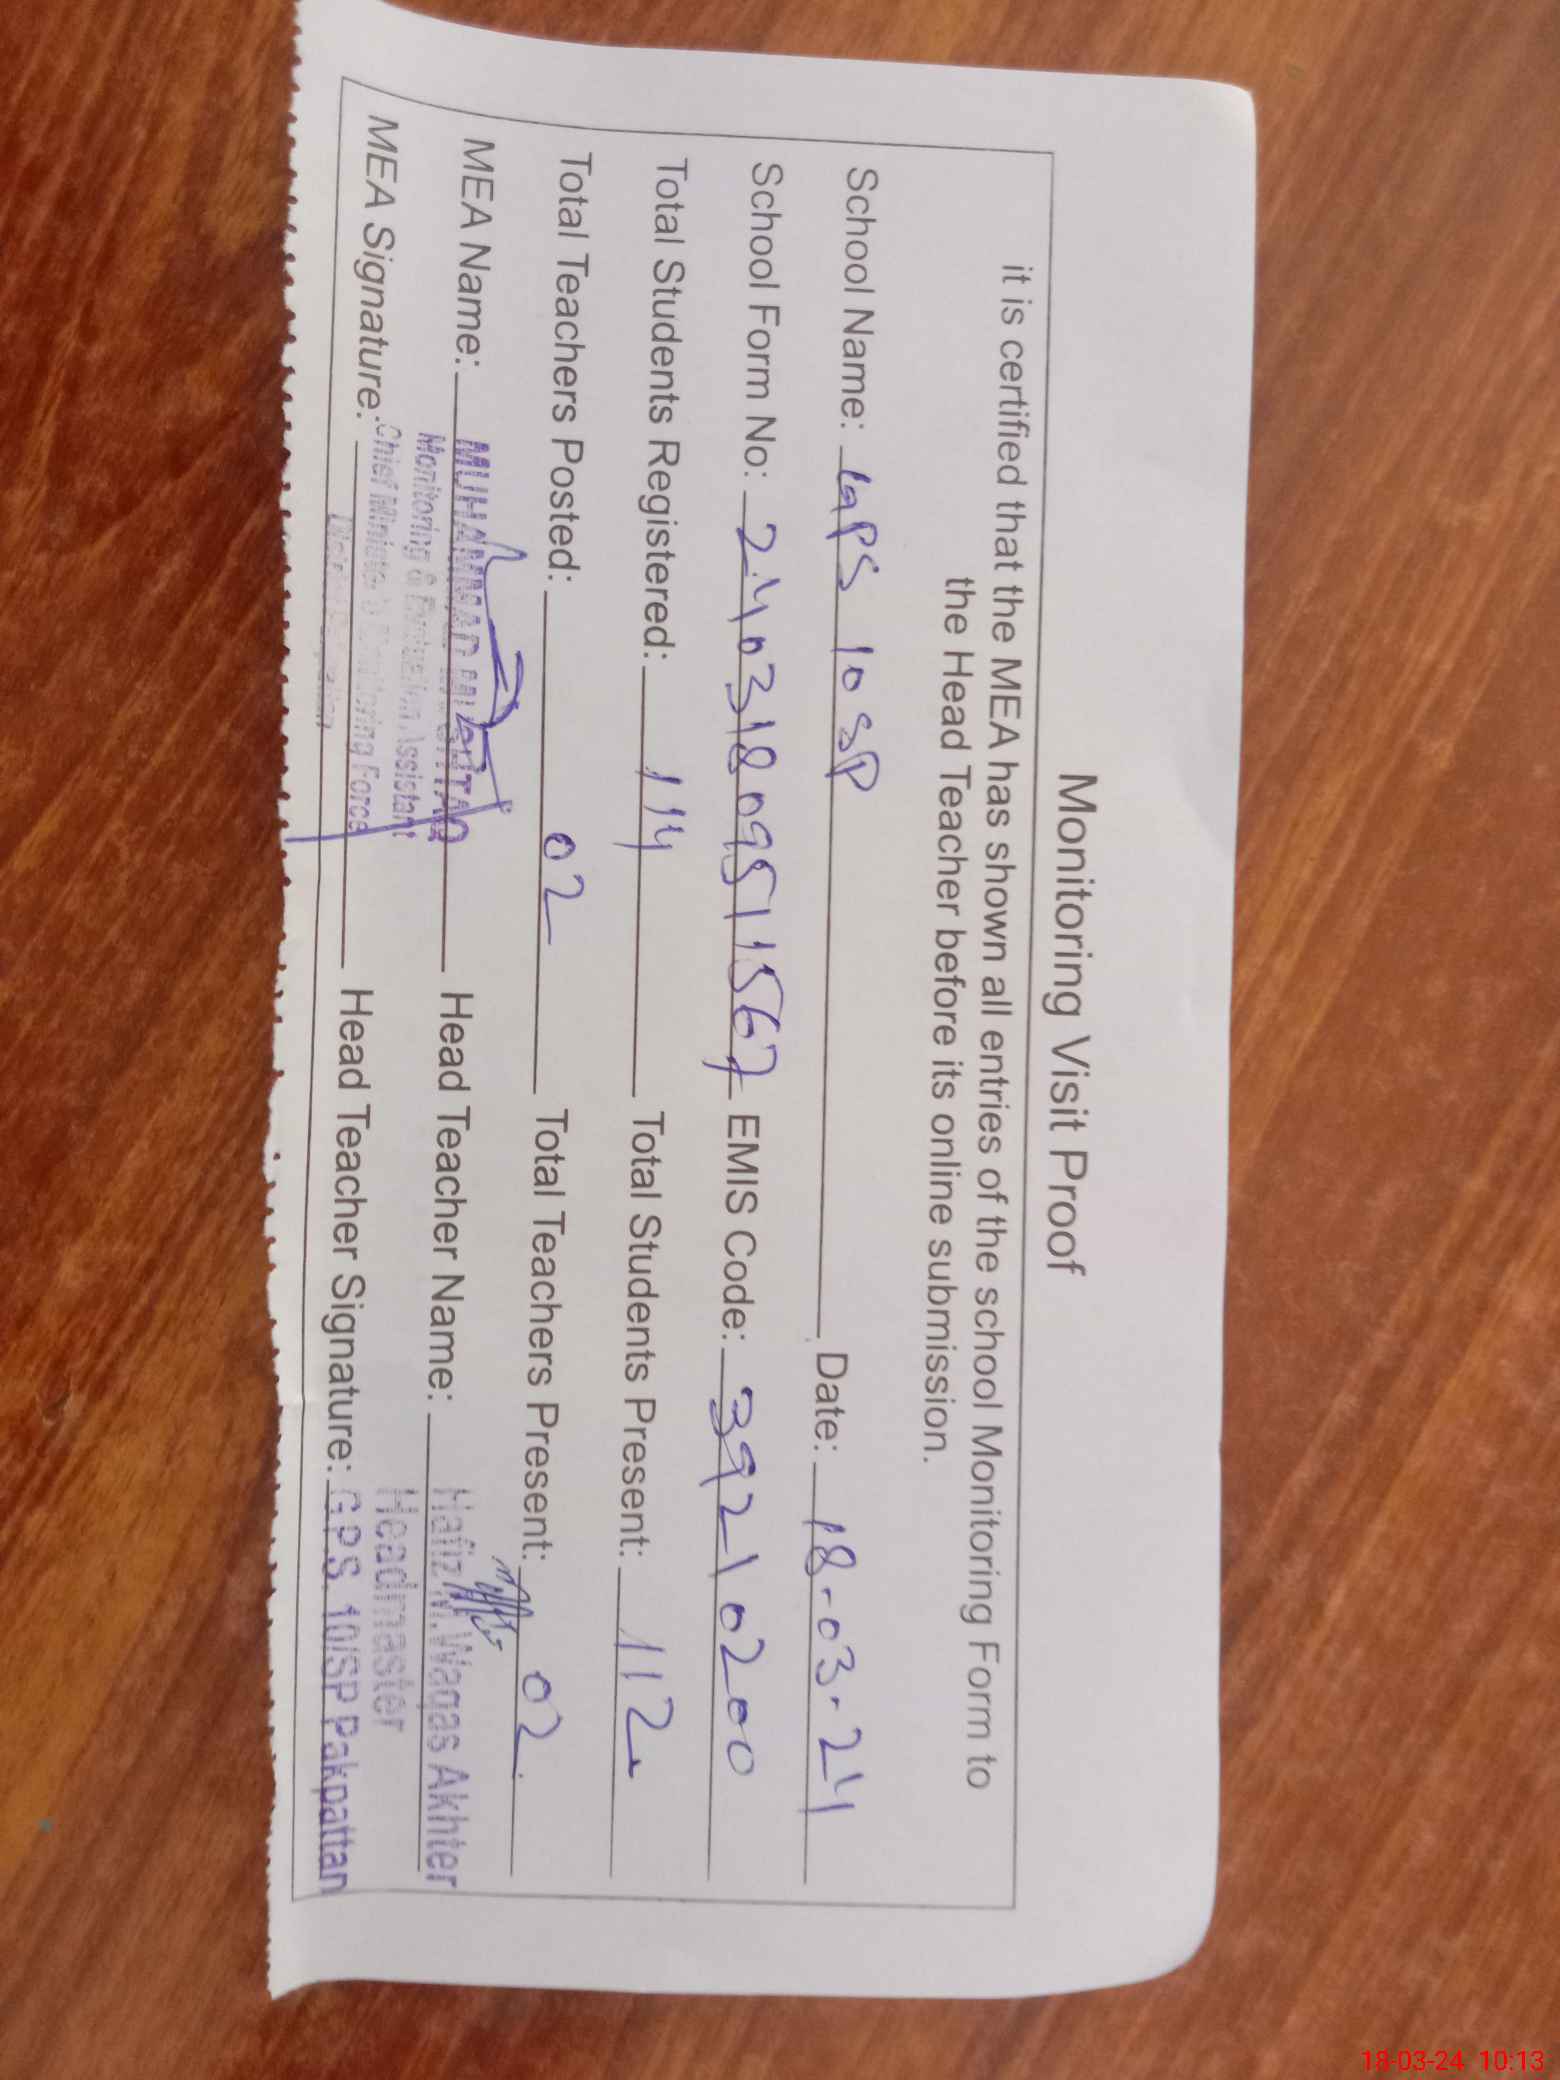 Monitoring Visit Proof
it is certified that the MEA has shown all entries of the school Monitoring Form to
the Head Teacher before its online submission.
School Name: GPS 10 SP Date: 18-03-24
School Form No: 24031809511567 EMIS Code: 39210200
Total Students Registered: 114 Total Students Present: 112
Total Teachers Posted: 02 Total Teachers Present: 02
MEA Name: MUHAMMAD MUSHTAQ Head Teacher Name: Hafiz M.Waqas Akhter
Monitoring & Evaluation Assistant Headmaster
MEA Signature: Chief Minister's Monitoring Force Head Teacher Signature: G.P.S. 10/SP Pakpattan
District Pakpattan
18-03-24 10:13